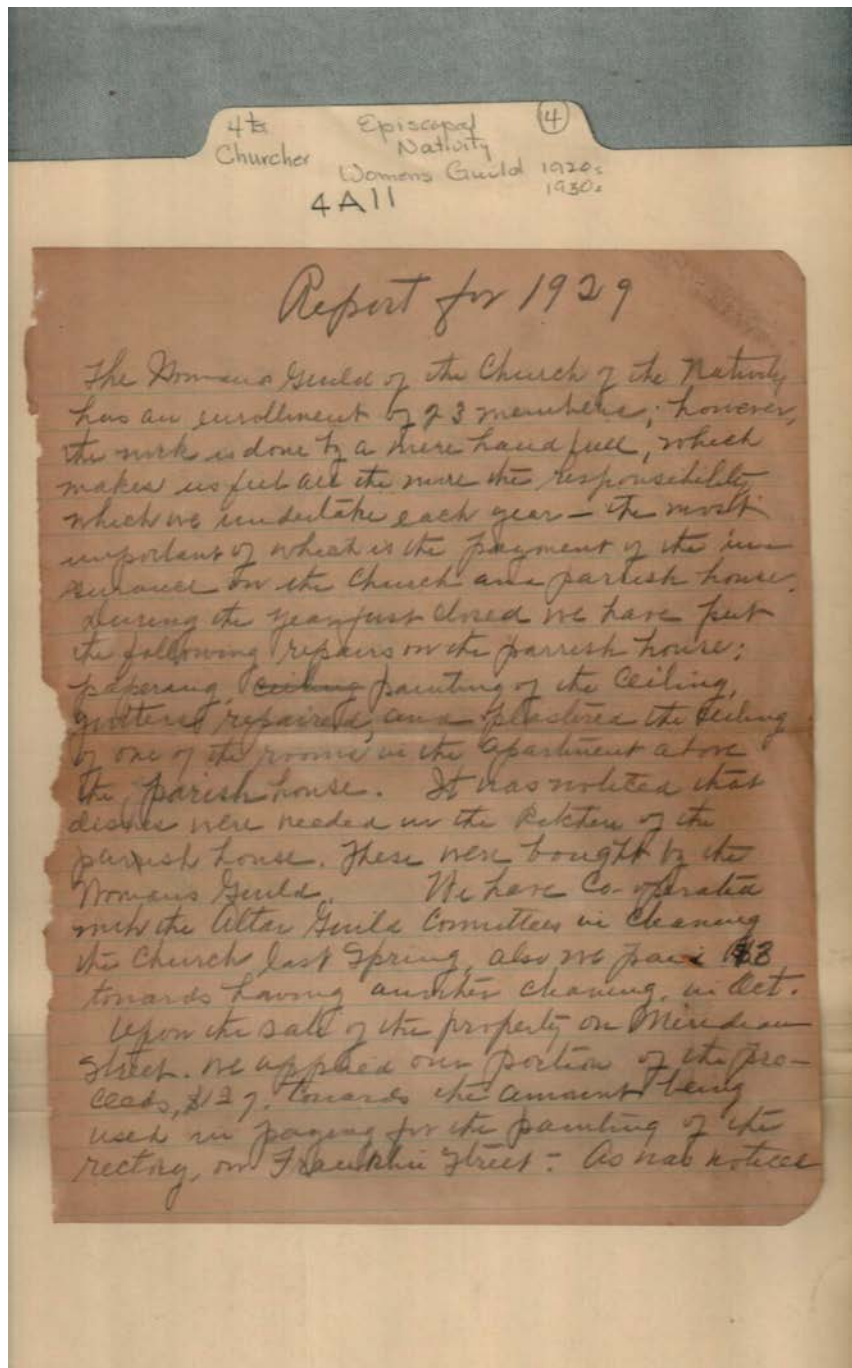 4ts Episcopal 4
Churcher Nativity
Womens Guild 1920s
1930s
4A11
Report for 1929
The Womans Guild of the Church of the Nativity
has an enrollment of 23 members; however,
the work is done by a mere hand full, which
makes us feel all the more the responsibility
which we undertake each year – the most
important of which is the payment of the in-
surance on the Church and parrish house.
During the year just closed we have put
the following repairs on the parrish house;
papering, ceiling painting of the Ceiling,
gutters repaired, and plastered the ceiling
of one of the rooms in the apartment above
the parish house. It was noticed that
dishes were needed in the kitchen of the
parrish house. These were bought by the
Womans Guild. We have Co-operated
with the Altar Guild Committees in Cleaning
the Church last Spring, also we paid $3
towards having another cleaning, in Oct.
Upon the sale of the property on Meridian
Street. we applied our portion of the pro-
ceeds, $127. towards the amount being
used in paying for the painting of the
rectory, on Franklin Street – As was noticed